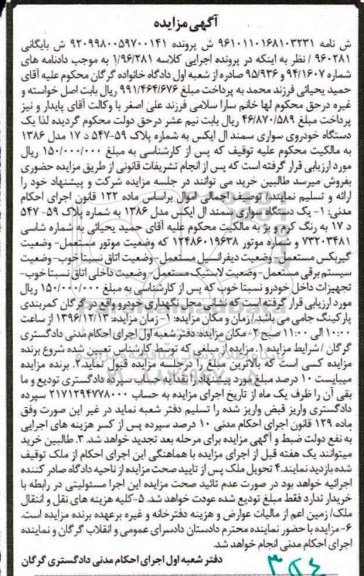 آگهی مزایده
ش نامه ۹۶۱۰۱۱۰۱۶۸۱۰۳۲۳۱ ش پرونده ۹۲۰۹۹۸۰۰۵۹۷۰۰۱۴۱ ش بایگانی
۹۶۰۲۸۱ / نظر به اینکه در پرونده اجرایی کلاسه ۱/۹۶/۲۸۱ به موجب دادنامه های
شماره ۹۴/۱۶۰۷ و ۹۵/۹۳۶ صادره از شعبه اول دادگاه خانواده گرگان محکوم علیه آقای
حمید یحیائی فرزند محمد به پرداخت مبلغ ۹۹۱/۴۶۴/۶۷۶ ریال بابت اصل خواسته و
غیره درحق محکوم لها خانم سارا سلامی فرزند علی اصغر با وکالت آقای پایدار و نیز
پرداخت مبلغ ۴۶/۸۷۰/۵۸۹ ریال بابت نیم عشر درحق دولت محکوم گردیده لذا یک
دستگاه خودروی سواری سمند ال ایکس به شماره پلاک ۵۹-۵۴۷ د ۱۷ مدل ۱۳۸۶
به مالکیت محکوم علیه توقیف که پس از کارشناسی به مبلغ ۱۵۰/۰۰۰/۰۰۰ ریال
مورد ارزیابی قرار گرفته است که پس از انجام تشریفات قانونی از طریق مزایده حضوری
بفروش میرسد طالبین خرید می توانند در جلسه مزایده شرکت و پیشنهاد خود را
ارائه و تسلیم نمایند: توصیف اجمالی اموال براساس ماده ۱۲۲ قانون اجرای احکام
مدنی: ۱- یک دستگاه سواری سمند ال ایکس مدل ۱۳۸۶ به شماره پلاک ۵۹- ۵۴۷
د ۱۷ به رنگ کرم و بژ به مالکیت محکوم علیه آقای حمید یحیائی به شماره شاسی
۷۳۲۰۳۴۸۱ و شماره موتور ۱۲۴۸۶۰۱۹۶۳۸ که وضعیت موتور مستعمل- وضعیت
گیربکس مستعمل- وضعیت دیفرانسیل مستعمل- وضعیت اتاق نسبتا خوب- وضعیت
سیستم برقی مستعمل- وضعیت لاستیک مستعمل- وضعیت داخلی اتاق نسبتا خوب-
تجهیزات داخل خودرو نسبتا خوب که پس از کارشناسی به مبلغ ۱۵۰/۰۰۰/۰۰۰ ریال
مورد ارزیابی قرار گرفته است که نشانی محل نگهداری خودرو واقع در گرگان کمربندی
پارکینگ جامی می باشد/ زمان و مکان مزایده: ۱- زمان مزایده: ۱۳۹۶/۱۲/۱۲ از ساعت
۱۰:۰۰ الی ۱۱:۰۰ صبح ۲- مکان مزایده: دفتر شعبه اول اجرای احکام مدنی دادگستری
گرگان / شرایط مزایده ۱. مزایده از مبلغی که توسط کارشناس تعیین شده شروع برنده
مزایده کسی است که بالاترین مبلغ را درجلسه مزایده قبول نماید. ۲. برنده مزایده
میبایست ۱۰ درصد مبلغ مورد پیشنهاد را نقدا به حساب سپرده دادگستری تودیع و ما
بقی آن را ظرف یک ماه از تاریخ اجرای مزایده به حساب ۲۱۷۱۲۹۴۷۷۸۰۰۰ سپرده
دادگستری واریز قبض واریز شده را تسلیم دفتر شعبه نماید در غیر این صورت وفق
ماده ۱۲۹ قانون اجرای احکام مدنی ۱۰ درصد سپرده پس از کسر هزینه های اجرایی
به نفع دولت ضبط و آگهی مزایده برای مرحله بعد تجدید خواهد شد. ۳. طالبین خرید
میتوانند یک هفته قبل از اجرای مزایده با هماهنگی این اجرای احکام از ملک توقیف
شده بازدید نمایند. ۴ تحویل ملک پس از تایید صحت مزایده از ناحیه دادگاه صادر کننده
اجرائیه خواهد بود در صورت عدم تائید صحت مزایده این اجرا مسئولیتی در رابطه با
خریدار ندارد فقط مبلغ تودیع شده عودت خواهد شد. ۵-کلیه هزینه های نقل و انتقال
ملک/ زمین اعم از مالیات عوارض و هزینه دفترخانه و غیره برعهده برنده مزایده است.
۶- مزایده با حضور نماینده محترم دادستان دادسرای عمومی و انقلاب گرگان و نماینده
اجرای احکام مدنی انجام خواهد شد.
دفتر شعبه اول اجرای احکام مدنی دادگستری گرگان